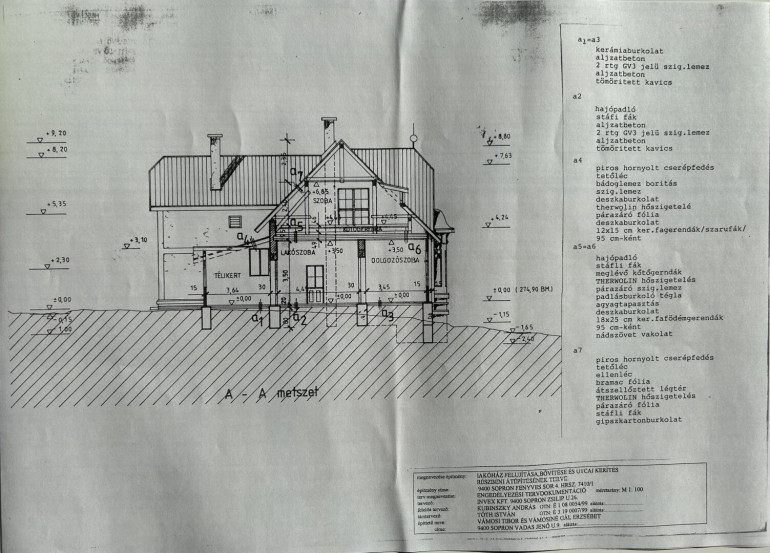 +9,20
+8,20
+5,35
+3,10
+2,30
±0,00
-1,15
-1,00
+8,80
+7,63
+4,24
±0,00 (274,90 BM)
-1,15
-1,65
-2,40
a7
+6,85
SZOBA
a5
a4
+3,50
+3,50
a6
LAKÓSZOBA
DOLGOZÓSZOBA
TÉLIKERT
3,50
15
3,64
30
30
3,45
15
±0,00
±0,00
±0,00
a1
a2
a3
A - A metszet
a1=a3
kerámiaburkolat
aljzatbeton
2 rtg GV3 jelű szig.lemez
aljzatbeton
tömörített kavics
a2
hajópadló
stáfli fák
aljzatbeton
2 rtg GV3 jelű szig.lemez
aljzatbeton
tömörített kavics
a4
piros hornyolt cserépfedés
tetőléc
bádoglemez borítás
szig.lemez
deszkaburkolat
therwolin hőszigetelé
párazáró fólia
deszkaburkolat
12x15 cm ker.fagerendák/szarufák/
95 cm-ként
a5=a6
hajópadló
stáfli fák
meglévő kötőgerndák
THERWOLIN hőszigetelés
párazáró szig.lemez
padlásburkoló tégla
agyagtapasztás
deszkaburkolat
18x25 cm ker.fafödémgerendák
95 cm-ként
nádszövet vakolat
a7
piros hornyolt cserépfedés
tetőléc
ellenléc
bramac fólia
átszellőztett légtér
THERWOLIN hőszigetelés
párazáró fólia
stáfli fák
gipszkartonburkolat
megtervezése építmény: LAKÓHÁZ FELUJÍTÁSA,BŐVÍTÉSE ÉS UTCAI KERÍTÉS
RÉSZBENI ÁTÉPÍTÉSÉNEK TERVE.
építmény címe: 9400 SOPRON FENYVES SOR 4. HRSZ. 7410/1
terv megnevezése: ENGEDÉLYEZÉSI TERVDOKUMENTÁCIÓ méretarány: M 1: 100
tervező: INVEX KFT. 9400 SOPRON ZSILIP U.26.
felelős tervező: KUBINSZKY ANDRÁS OTN: É 1 08 0034/99 aláírás:
TÓTH ISTVÁN OTN: É 3 19 0007/99 aláírás:
építtető neve: VÁMOSI TIBOR ÉS VÁMOSINÉ GÁL ERZSÉBET
címe: 9400 SOPRON VADAS JENŐ U.9. aláírás: